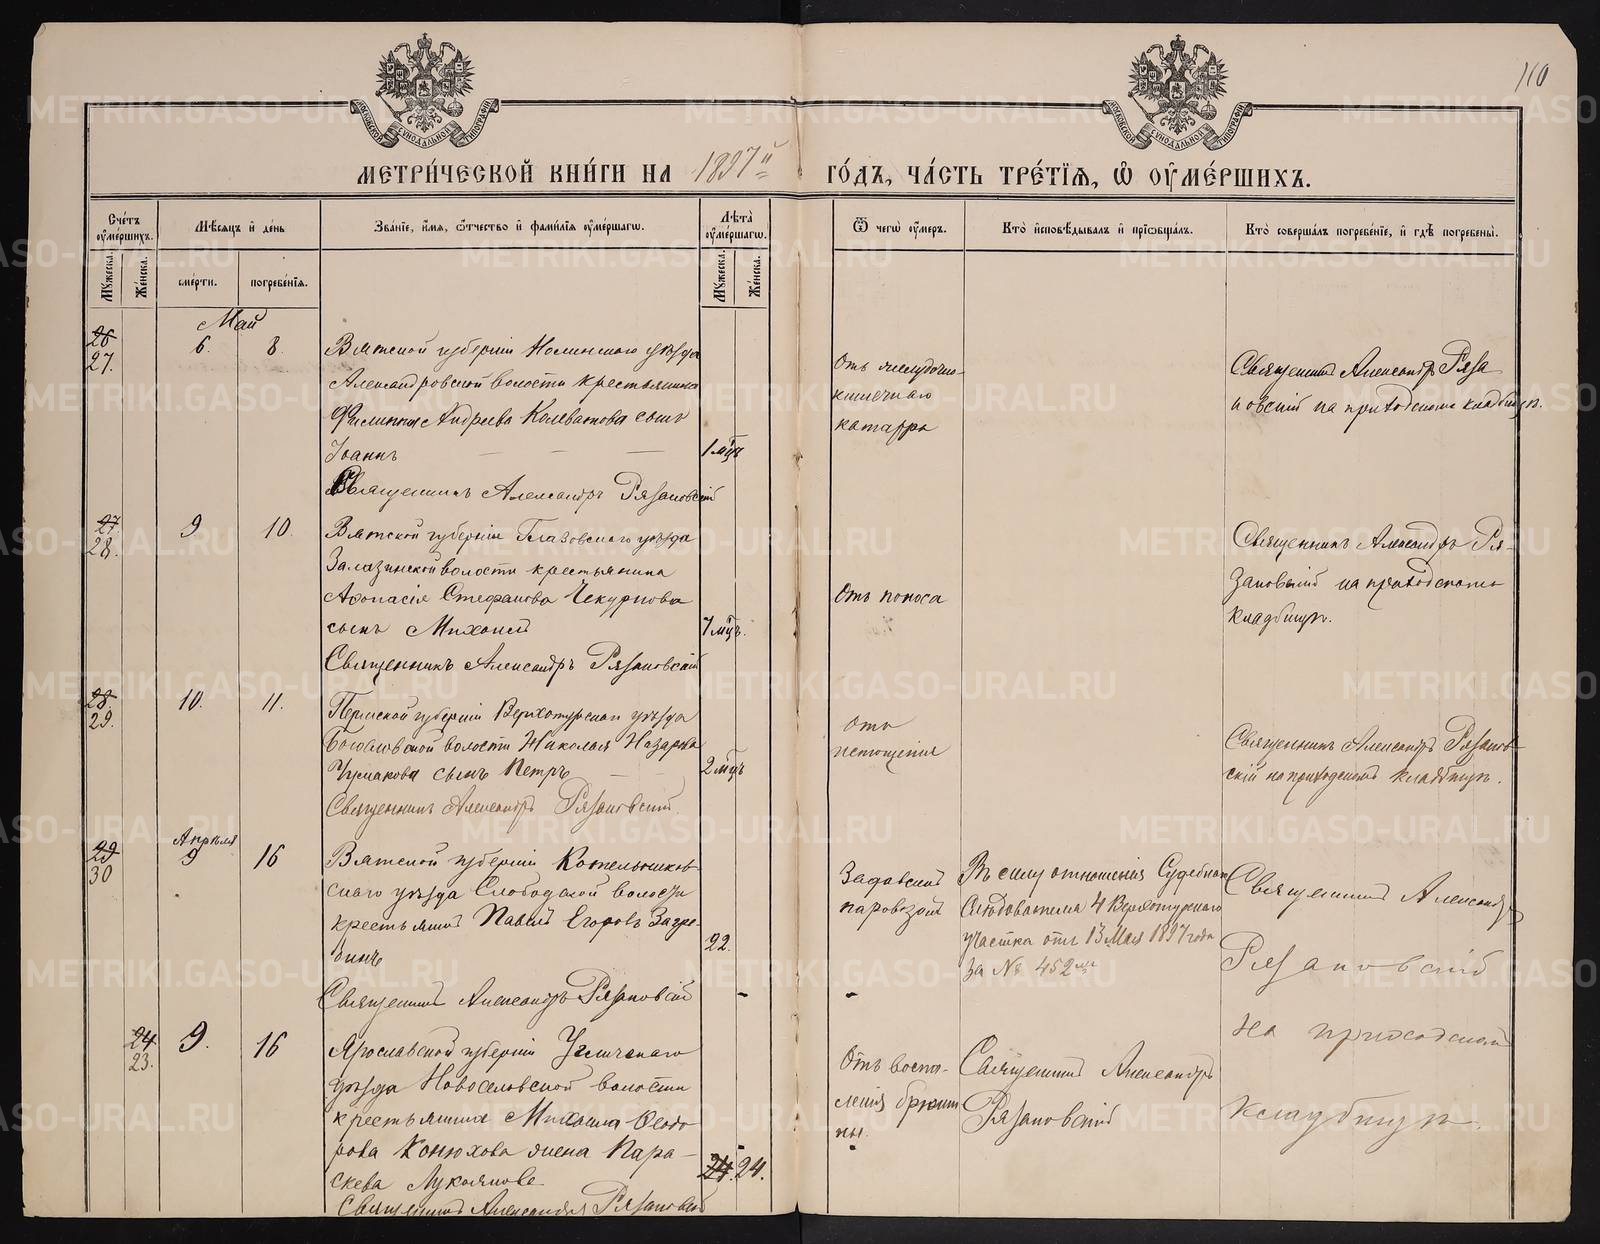 110
МЕТРИ́ЧЕСКОЙ КНИ́ГИ НА 1897й ГО́ДЪ, ЧА́СТЬ ТРЕ́ТЇѦ, Ѡ҆ ОУ҆МЕ́РШИХЪ.
Сче́тъ оу҆ме́ршихъ.
Мѣ́сяцъ и҆ де́нь
Зва́нїе, и҆́мѧ, ѻ҆́тчество и҆ фами́лїѧ оу҆ме́ршагѡ.
Лѣта̀ оу҆ме́ршагѡ.
Ѿ чегѡ̀ оу҆́меръ.
Кто̀ и҆сповѣ́дывалъ и҆ прїѡбща́лъ.
Кто̀ соверша́лъ погребе́нїе, и҆ гдѣ̀ погребены̀.
Мꙋ́жеска. Же́нска. сме́рти. погребе́нїѧ. Мꙋ́жеска. Же́нска.
Май
26
27. 6. 8.
Вятской губернiи Нолинскаго уѣзда
Александровской волости крестьянина
Филиппа Андреева Колеватова сынъ
Iоаннъ — — — 1 мца
Священникъ Александръ Рязановскiй
Отъ желудочно-
кишечнаго
катарра
Священникъ Александръ Ряза
новскiй на приходскомъ кладбищѣ.
27
28. 9 10.
Вятской губернiи Глазовскаго уѣзда
Залазнинской волости крестьянина
Афонасiя Стефанова Чекурнова
сынъ Михаилъ 7 мцъ.
Священникъ Александръ Рязановскiй
Отъ поноса
Священникъ Александръ Ря-
зановскiй на приходскомъ
кладбищѣ.
28.
29. 10. 11.
Пермской губернiи Верхотурскаго уѣзда
Богословской волости Николая Назарова
Чусмакова сынъ Петръ — — 2 мцъ
Священникъ Александръ Рязановскiй
Отъ
истощенiя
Священникъ Александръ Рязанов-
скiй на приходскомъ кладбищѣ.
29
30
Апрѣля
9 16
Вятской губернiи Котельничев-
скаго уѣзда Слободской волости
крестьянинъ Павелъ Егоровъ Загре-
бинъ 22.
Священникъ Александръ Рязановскiй
Задавленъ
паровозомъ
Въ силу отношенiя Судебнаго
Слѣдователя 4 Верхотурскаго
участка отъ 13 Мая 1897 года
за № 452мъ
Священникъ Александръ
Рязановскiй
на приходскомъ
кладбищѣ.
24.
23. 9. 16
Ярославской губернiи Угличскаго
уѣзда Новоселовской волости
крестьянина Михаила Ѳеодо
рова Конюхова жена Пара-
скева Лукоянова 24. 24.
Священникъ Александръ Рязановскiй
Отъ воспа-
ленiя брюши
ны.
Священникъ Александръ
Рязановскiй